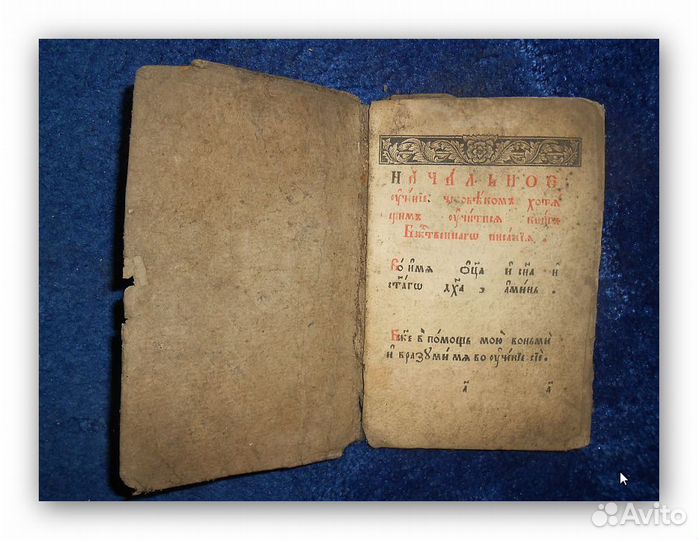 НАЧА́ЛЬНОЕ
ᲂу҆че́нїе человѣ́комъ хотѧ́
щимъ ᲂу҆чи́тисѧ кни́гъ
Бж҃е́ственнагѡ писа́нїѧ .
Во и҆́мѧ ѻ҆ц҃а̀ и҆ сн҃а и҆
ст҃а́гѡ дх҃а , а҆ми́нь .
Бж҃е в̾ по́мощь мою̀ во́ньми
и҆ вразꙋми́ мѧ во ᲂу҆че́нїе сїѐ.
а҃ а҃
Avito